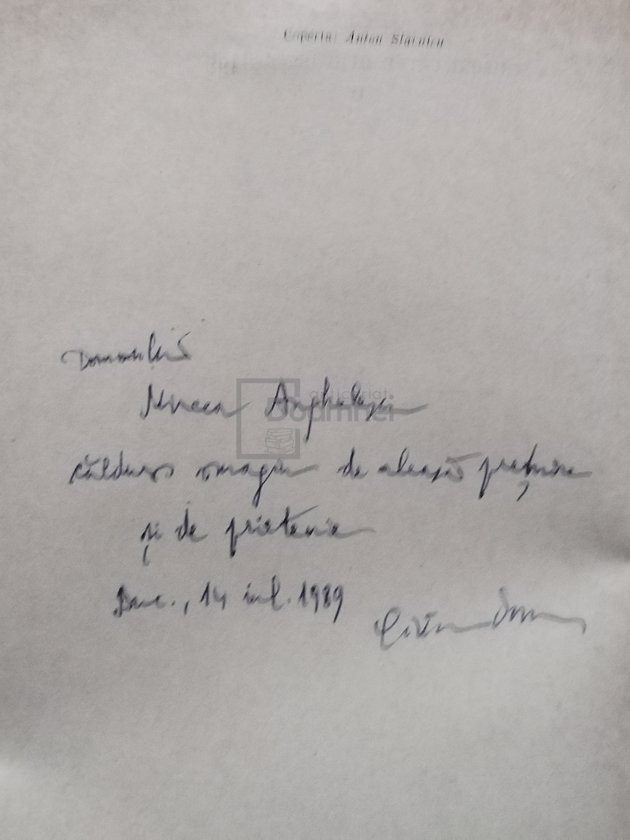 Coperta: Anton
Domnului
Mircea Anghelescu
călduros omagiu de aleasă prețuire
și de prietenie
Buc., 14 iul. 1989
anticariat
Doamnei